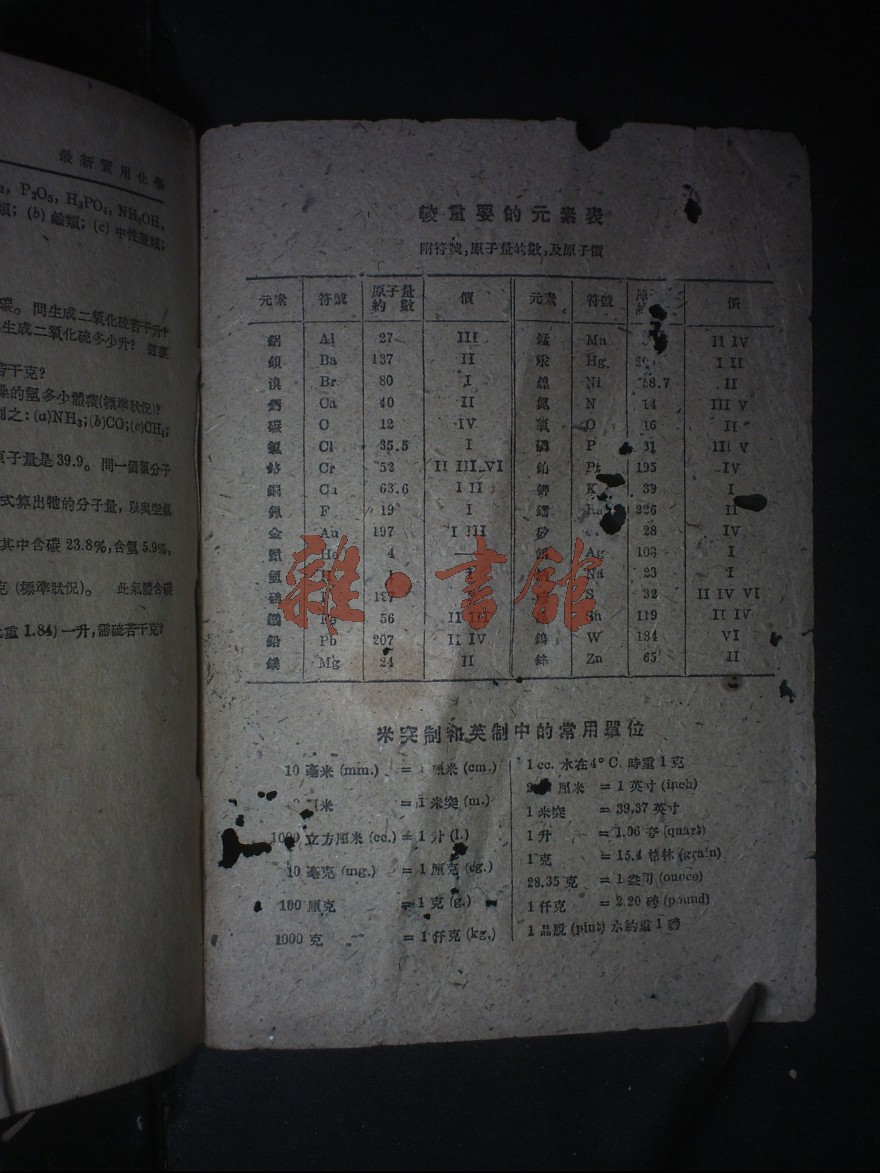 最新實用化學
P₂O₅, H₃PO₄, NH₄OH,
類; (b) 鹼類; (c) 中性鹽類;
碳。 問生成二氧化硫若干升?
生成二氧化硫多少升?
若干克?
的氫多少體積(標準狀況)?
之:(a)NH₃;(b)CO;(c)CH₄;
原子量是39.9。 問一個氬分子
式算出牠的分子量, 以與
其中含碳 23.8%, 含氫 5.9%,
克 (標準狀況)。 此氣體含碳
重 1.84) 一升, 需硫若干克?
較重要的元素表
附符號,原子量約數,及原子價
元素 符號 原子量約數 價 元素 符號 原 約 價
鋁 Al 27 III 錳 Mn II IV
鋇 Ba 137 II 汞 Hg I II
溴 Br 80 I 鎳 Ni 58.7 II
鈣 Ca 40 II 氮 N 14 III V
碳 C 12 IV 氧 O 16 II
氯 Cl 35.5 I 磷 P 31 III V
鉻 Cr 52 II III VI 鉑 Pt 195 IV
銅 Cu 63.6 I II 鉀 K 39 I
氟 F 19 I 鐳 Ra 226 II
金 Au 197 I III 矽 28 IV
氦 He 4 — 銀 Ag 108 I
氫 1 I Na 23 I
碘 127 S 32 II IV VI
鐵 Fe 56 II III Sn 119 II IV
鉛 Pb 207 II IV 鎢 W 184 VI
鎂 Mg 24 II 鋅 Zn 65 II
雜·書館
米突制和英制中的常用單位
10 毫米 (mm.) = 1 厘米 (cm.)
厘米 = 1 米突 (m.)
1000 立方厘米 (cc.) = 1 升 (l.)
10 毫克 (mg.) = 1 厘克 (cg.)
100 厘克 = 1 克 (g.)
1000 克 = 1 仟克 (kg.)
1 cc. 水在4°C. 時重 1 克
厘米 = 1 英寸 (inch)
1 米突 = 39.37 英寸
1 升 = 1.06 夸 (quart)
1 克 = 15.4 格林 (grain)
28.35 克 = 1 盎司 (ounce)
1 仟克 = 2.20 磅 (pound)
1 品脫 (pint) 水約重 1 磅